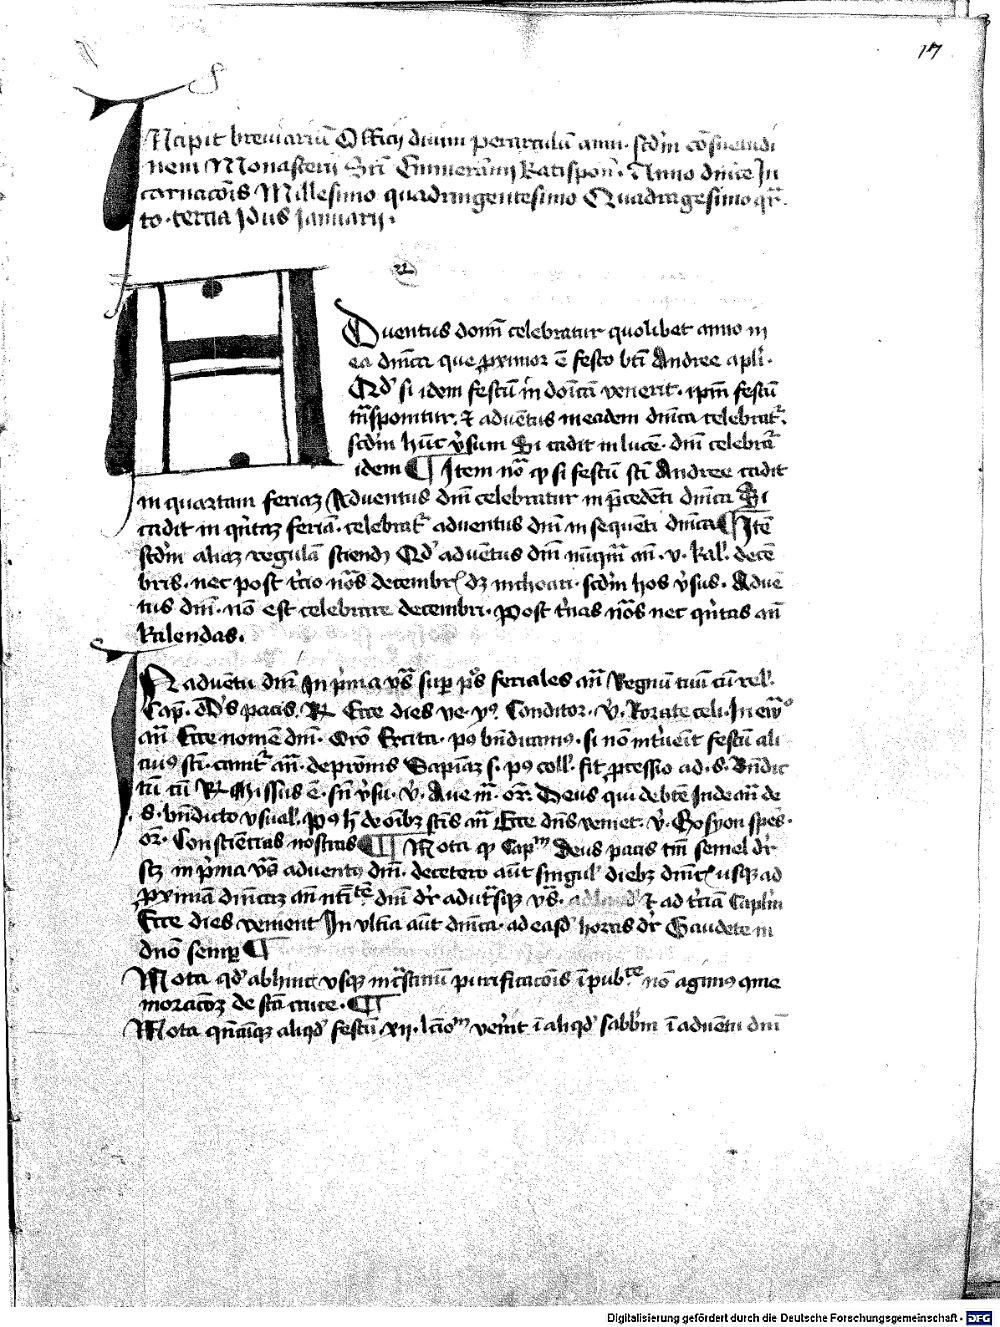 17
INcipit breviariū Officij divini per circulū anni · scd̄m cōsuetudi
nem Monasterij Sci̅ Emmerammi Ratispon̄ · Anno dn̄ice In
carnacōis Millesimo quadringentesimo Quadragesimo qr̄
to · tercia Idus Januarij ·
Aduentus domī celebratur quolibet anno in
ea dn̄ica que ꝓximor ē festo bti̅ Andree apl̄i ·
Qd' si idem festū in doīcā venerit · ip̄m festū
trāsponitur · ⁊ aduentus in eadem dn̄ica celebrat᷑ ·
scd̄m hūc v̄sum Si cadit in lucē · dn̄i celebrat᷑
idem ¶ Item no̅ ꝙ si festū sci̅ Andree cadit
in quartam feriaꝫ Aduentus dn̄i celebratur in p̄cedēti dn̄ica Si
cadit in qn̄taꝫ feriā · celebrat᷑ aduentus dn̄i in sequēti dn̄ica ¶ Itē
scd̄m aliaꝫ regulā sciend' Qd' aduētus dn̄i nūqm̄ an̄ · v · kal' · decē
bris · nec post t'cio no̅s decembr' dꝫ inchoari · scd̄m hos v̄sus · Aduē
tus dn̄i · nō est celebrare decembri · Post t'nas no̅s nec qn̄tas an̄
kalendas ·
IN aduentu dn̄i In p'ma vs̄ sup̱ ps̄ feriales an̄ Regnū tuū cū rel' ·
Cap' · Ds̄ pacis · R̸ Ecce dies ve · yꝰ · Conditor · V̄ · Rorate celi · In ew̄
an̄ Ecce nomē dn̄i · Orō Excita · pꝰ bn̄dicamꝰ · si nō int'ueīt festū ali
cuiꝰ sci̅ · cantet᷑ an̄ · de prōnis Sapiaꝫ s · pꝰ coll' · fit ꝓcessio ad · s · Bn̄dic
tū cū R̸ Missus ē · sn̄ v̄su · V̄ · Aue m̄ · or̄ · Deus qui de btē Inde an̄ de
s · bn̄dicto v̄sual' · Pꝰ h̄ de oībꝫ scī̅s an̄ Ecce dn̄s veniet · V̄ · Ex syon spēs ·
or̄ · Conscientias nostras ¶ Nota ꝙ Cap'm Deus pacis tm̄ semel dr̄
scꝫ in p'ma vs̄ aduentꝰ dn̄i · decetero aūt singul' diebꝫ dn̄ic' usqꝫ ad
ꝓximā dn̄icaꝫ an̄ nti̅tē dn̄i dr̄ ad ut̄sqꝫ vs̄ · ad laud' ⁊ ad t'ciā Caplm̄
Ecce dies venient In vltīa aūt dn̄ica · ad easd' horas dr̄ Gaudete in
dn̄o semꝑ ¶
Nota qd' abhinc vsqꝫ in c̄stinū purificacōis īpub'ce nō agimꝰ cōme
moracōꝫ de scā cruce · ¶
Nota qn̄cūqꝫ aliqd' festū xij · lc̄ionū vener̄it ī aliqd' sabb'm ī aduētu dn̄i
Digitalisierung gefördert durch die Deutsche Forschungsgemeinschaft - DFG